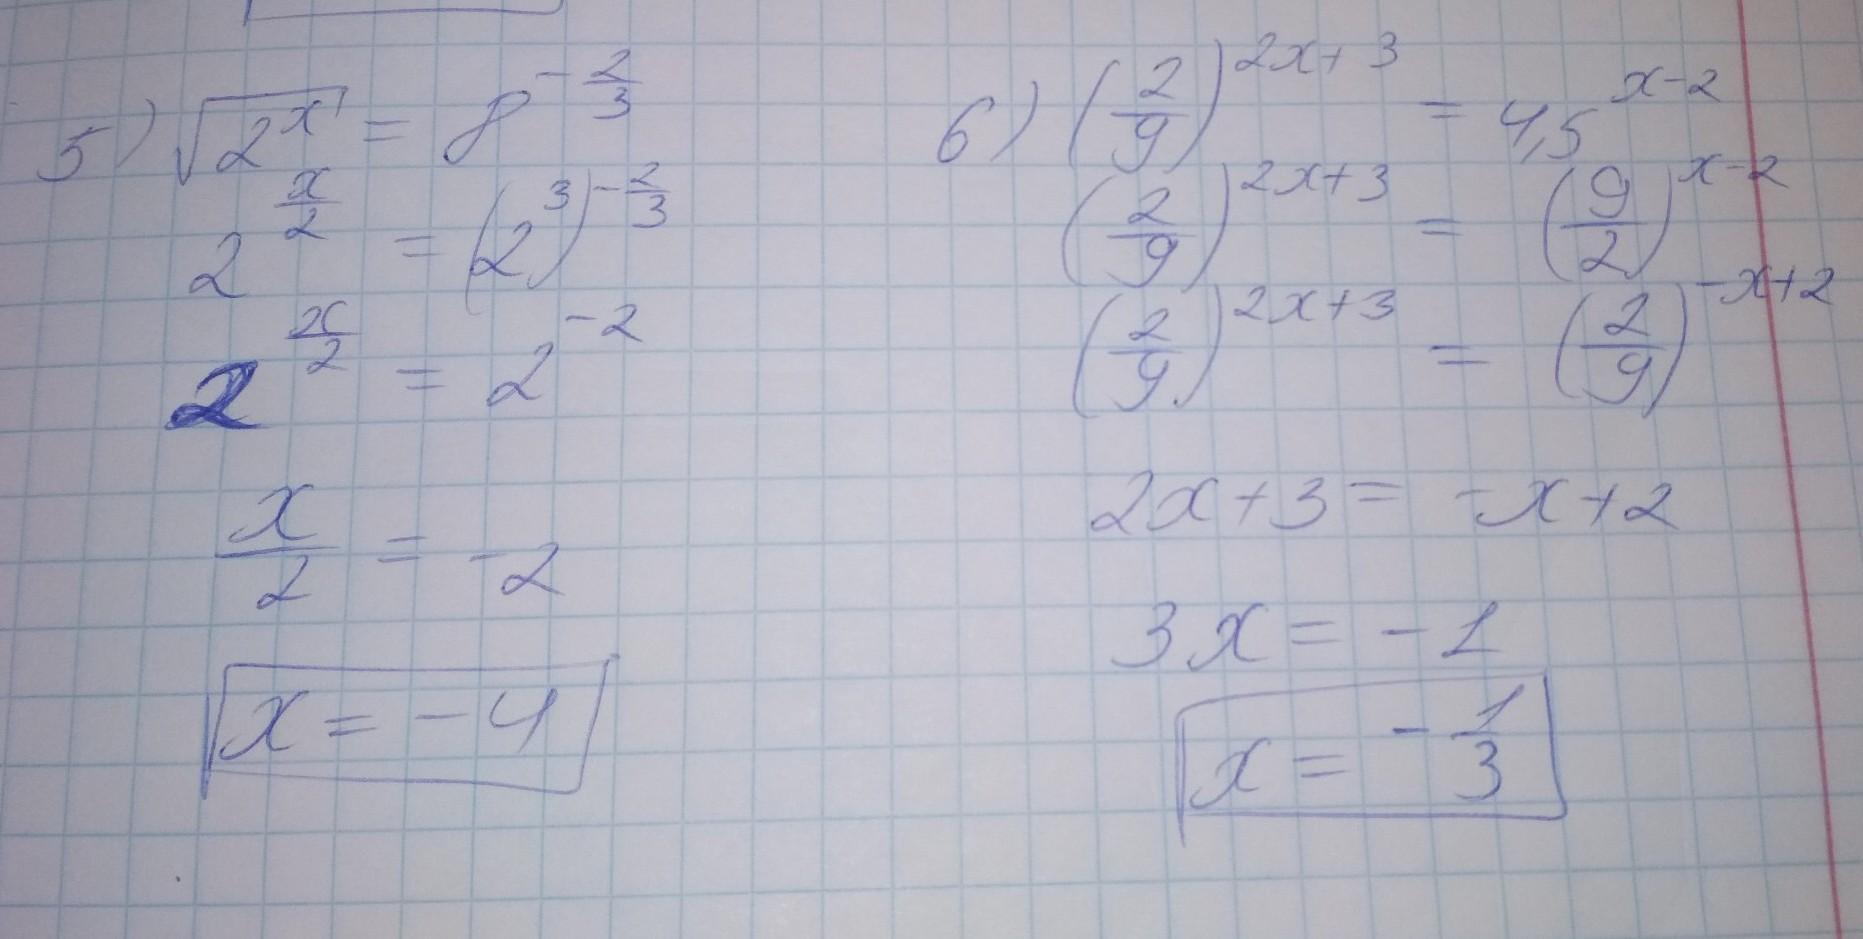 5) √2^x = 8^(-2/3)
2^(x/2) = (2^3)^(-2/3)
2^(x/2) = 2^(-2)
x/2 = -2
x = -4
6) (2/9)^(2x+3) = 4,5^(x-2)
(2/9)^(2x+3) = (9/2)^(x-2)
(2/9)^(2x+3) = (2/9)^(-x+2)
2x+3 = -x+2
3x = -1
x = -1/3